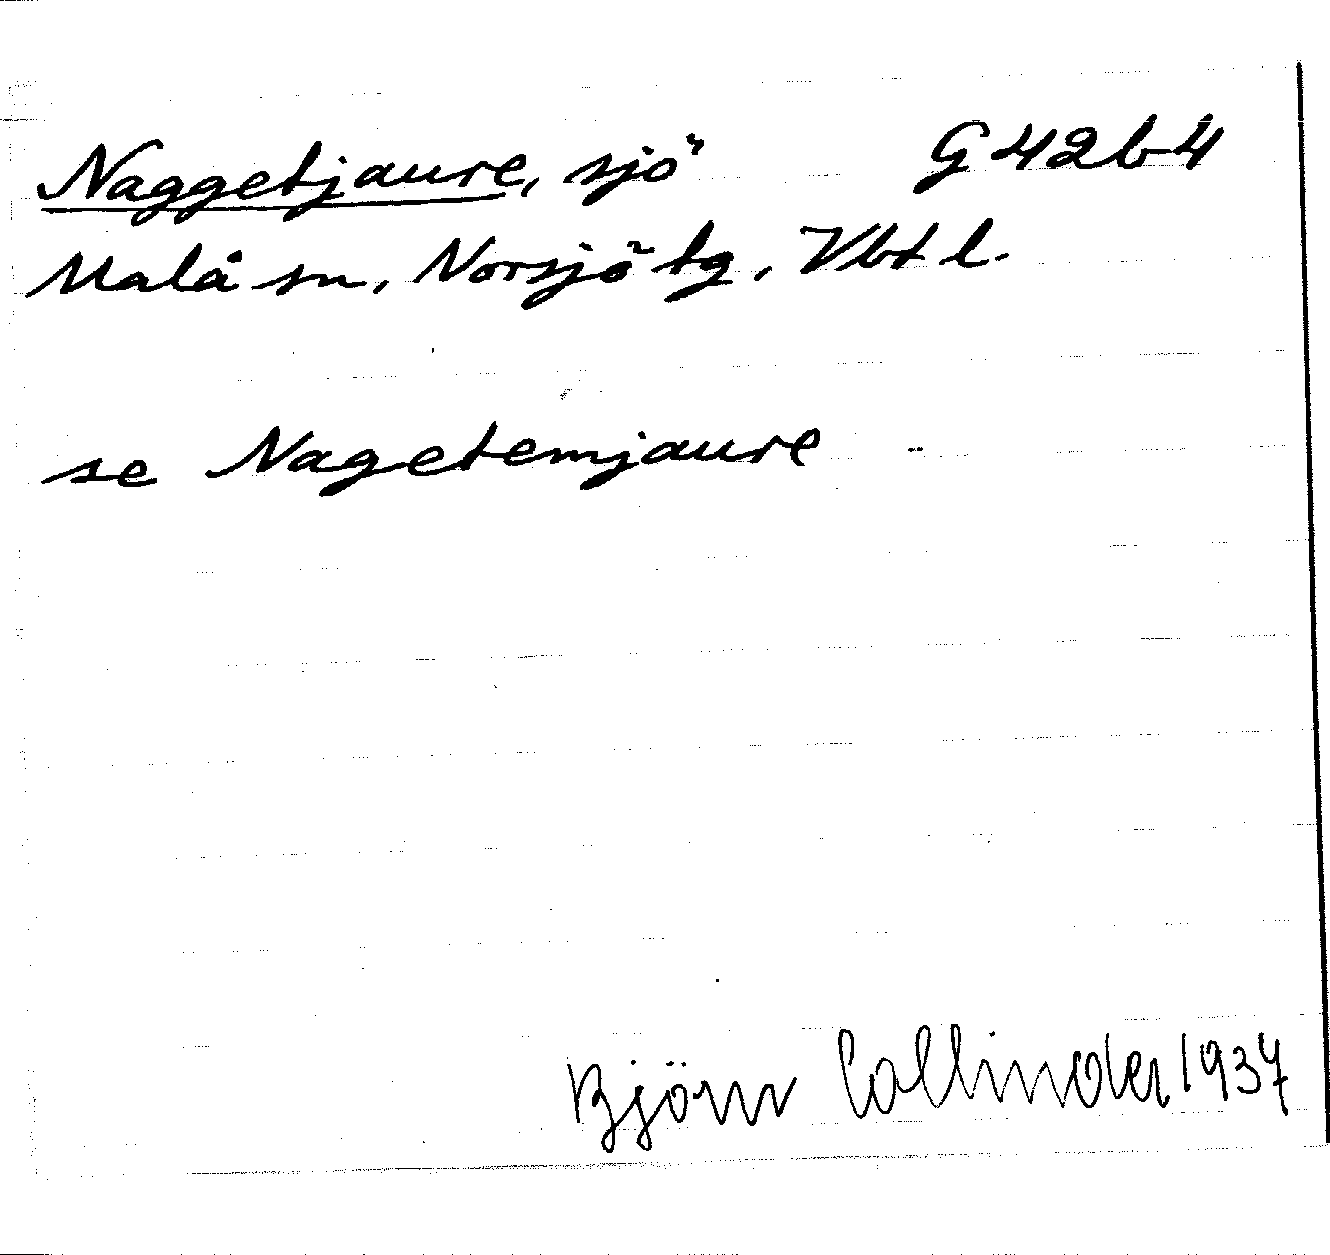 Naggetjaure, sjö G 42 b 4
Malå sn, Norsjö tg, Vbt l.
se Nagetemjaure
Björn Collinder 1937